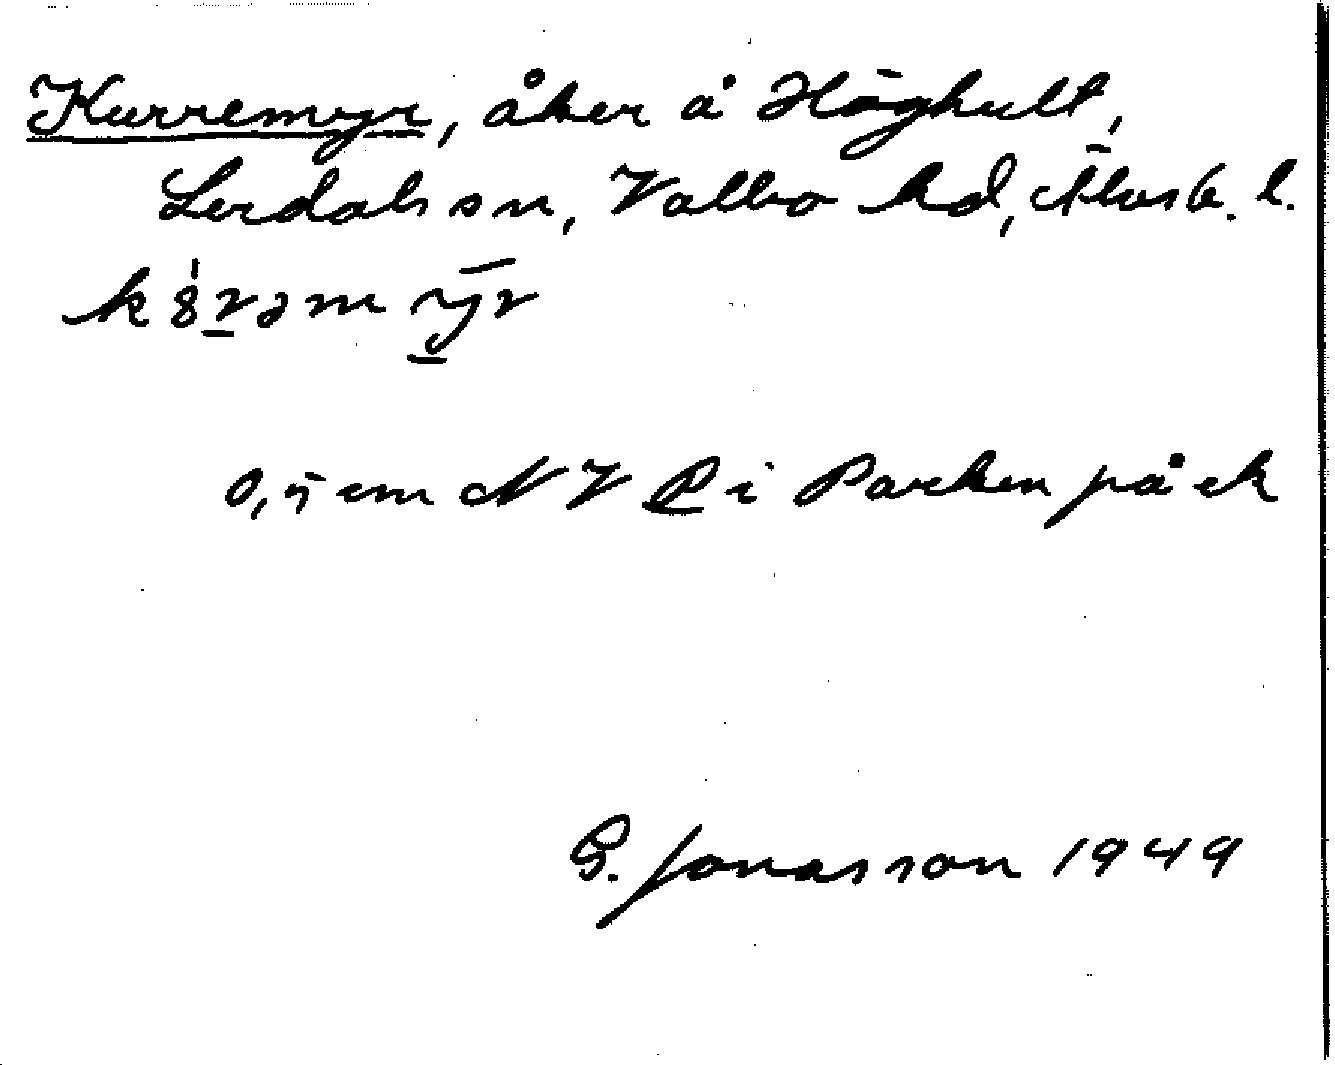 Kurremyr, åker å Höghult,
Lerdals sn, Valbo hd, Älvsb. l.
0,5 cm NV P i Parken på ek
G. Jonasson 1949